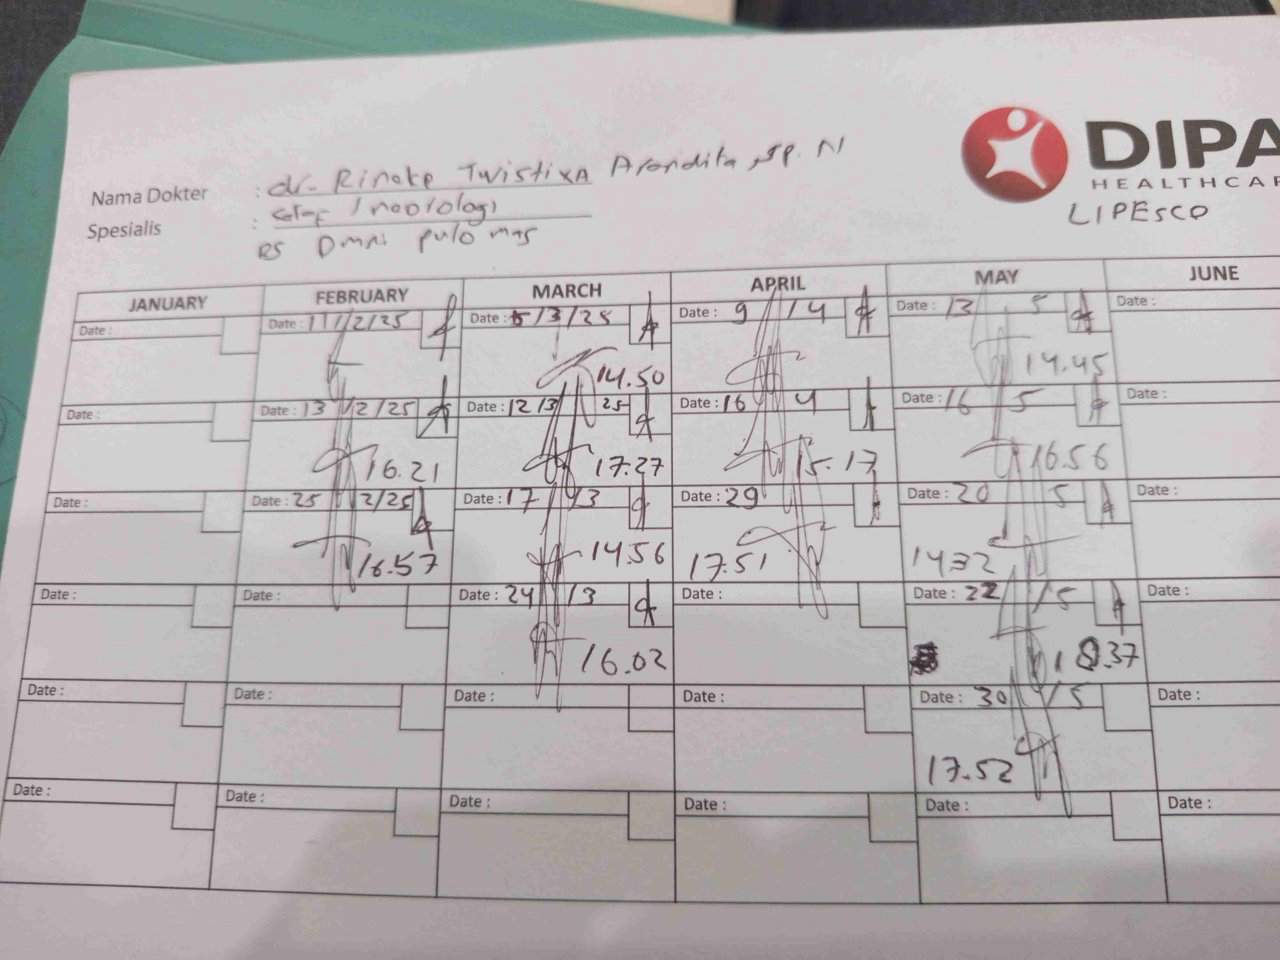 DIPA
HEALTHCAR
LIPESCO
Nama Dokter : dr. Rinoke Twistixa Arandita, Sp. N
Spesialis : Staf / neorologi
RS Omni pulo mas
JANUARY FEBRUARY MARCH APRIL MAY JUNE
Date : Date : 11/2/25 Date : 5/3/25 Date : 9/4 Date : 13 5 Date :
14.50 14.45
Date : Date : 13/2/25 Date : 12/3 25 Date : 16 4 Date : 16 5 Date :
16.21 17.27 15.17 16.56
Date : Date : 25/2/25 Date : 17/3 Date : 29 Date : 20 5 Date :
16.57 14.56 17.51 1432
Date : Date : Date : 24/3 Date : Date : 22/5 Date :
16.02 18.37
Date : Date : Date : Date : Date : 30/5 Date :
17.52
Date : Date : Date : Date : Date : Date :